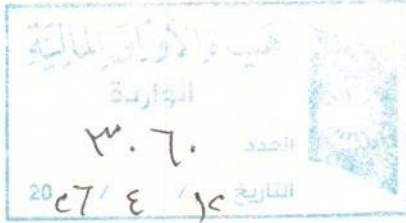 هيئة الأوراق المالية
الواردة
العدد ٣٠٦٠
التاريخ ١٢ / ٤ / 20٢٦